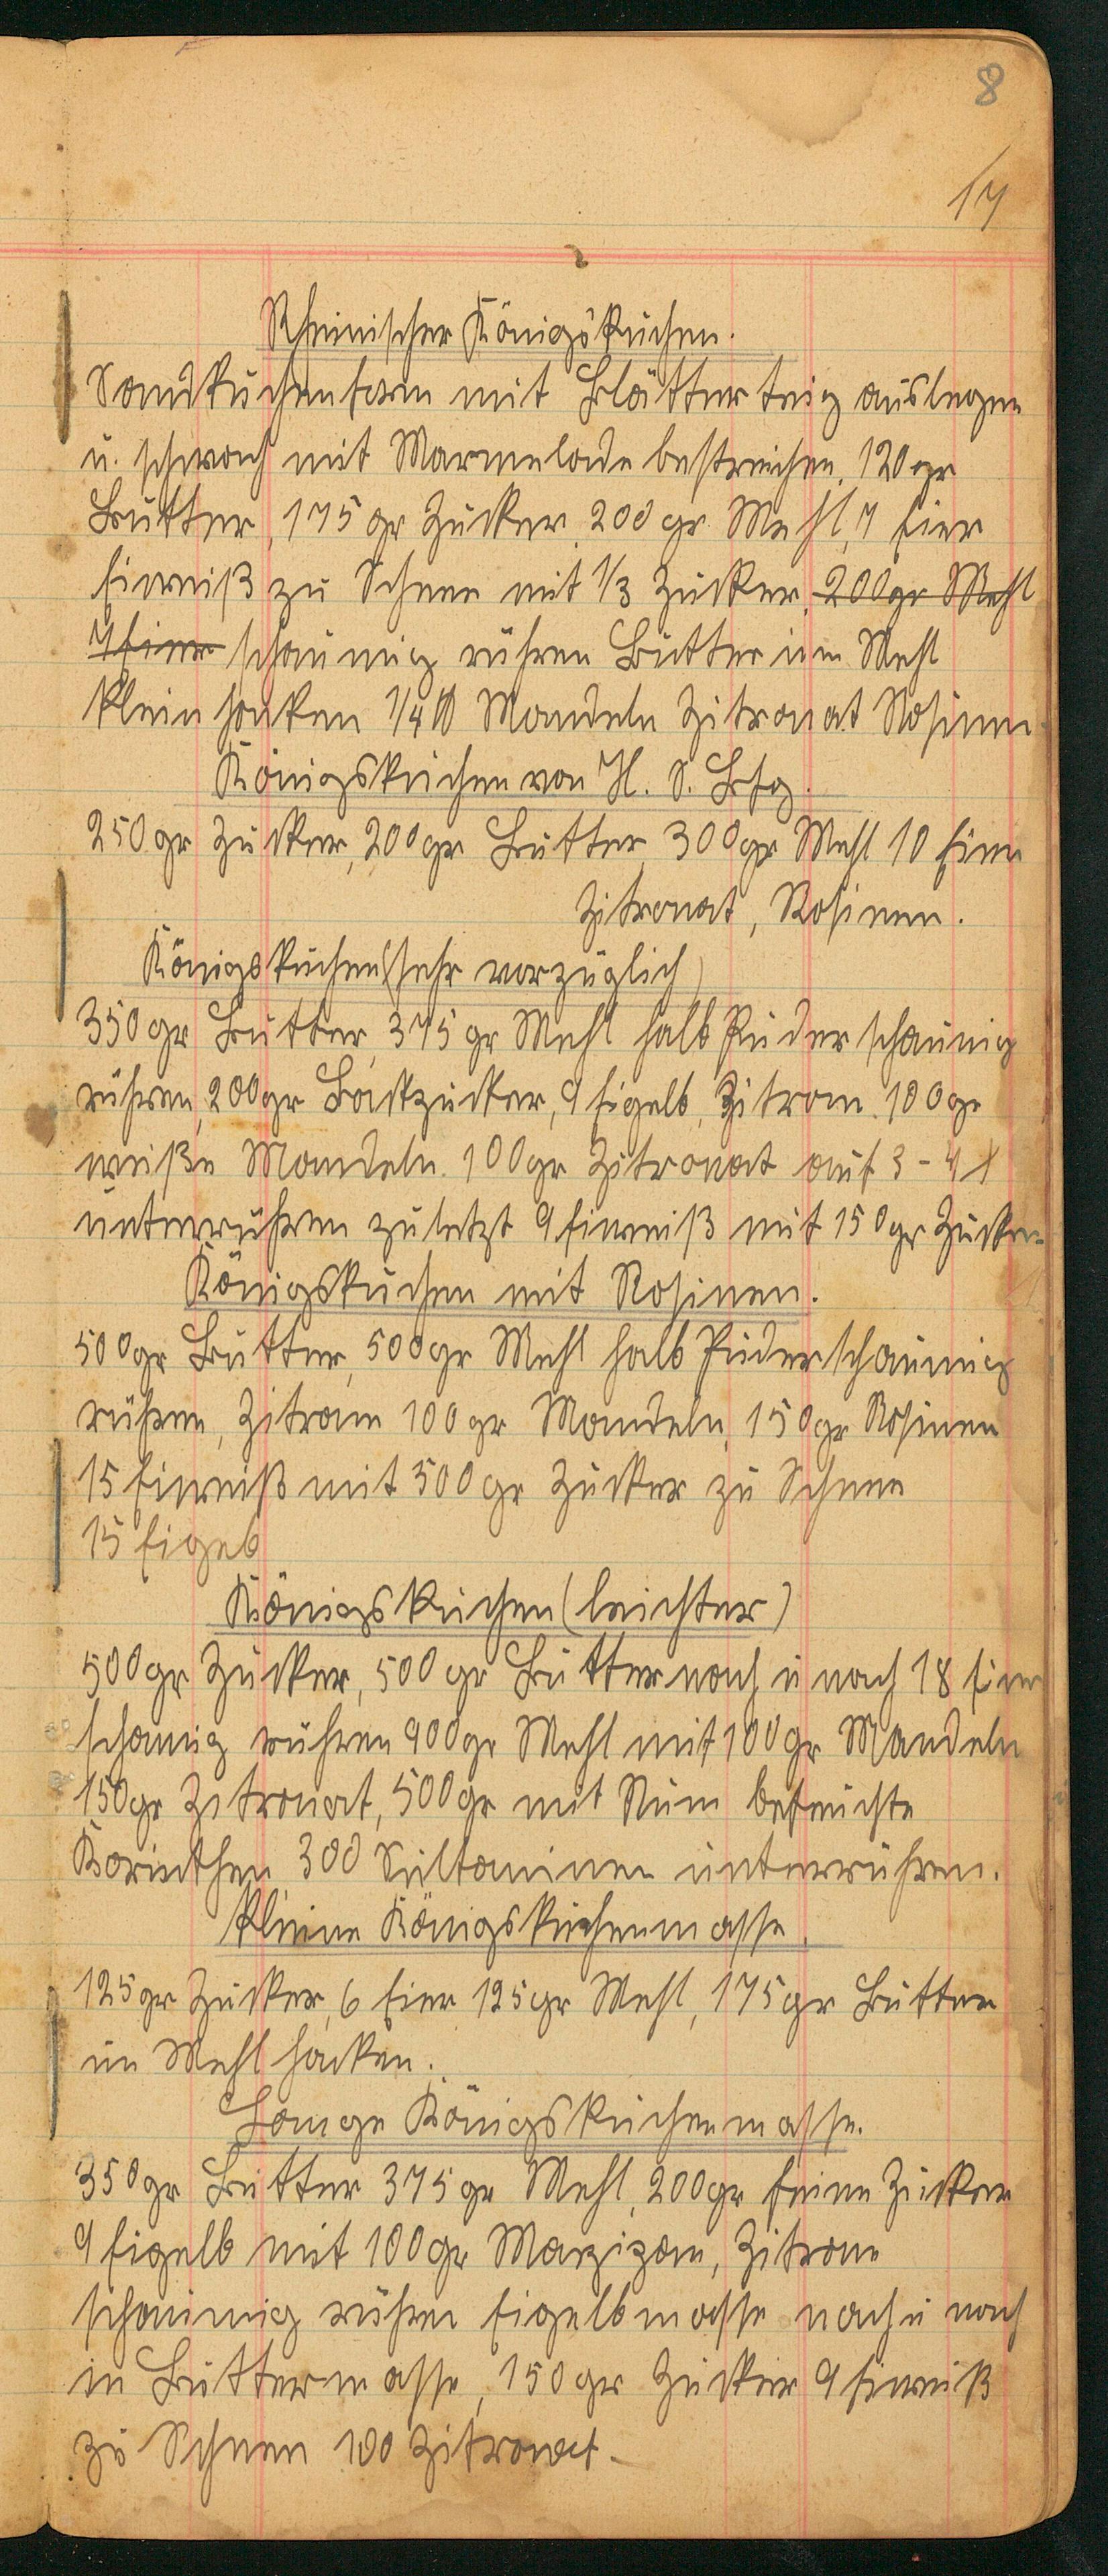 8
17
Rheinischer Königskuchen.
Sandkuchenform mit Blätterteig auslegen
u. schwach mit Marmelade bestreichen, 120 gr
Butter, 175 gr Zucker, 200 gr Mehl, 7 Eier
Eiweiß zu Schnee mit 1/3 Zucker, 200 gr Mehl
7 Eier schaumig rühren Butter im Mehl
klein hacken 1/4 ℔ Mandeln Zitronat Rosinen
Königskuchen von H. S. Bfg.
250 gr Zucker, 200 gr Butter 300 gr Mehl 10 Eier
Zitronat, Rosinen.
Königskuchen (sehr vorzüglich)
350 gr Butter, 375 gr Mehl halb Puder schaumig
rühren, 200 gr Backzucker, 9 Eigelb, Zitron. 100 gr
weiße Mandeln. 100 gr Zitronat auf 3-4 X
unterrühren zuletzt 9 Eiweiß mit 150 gr Zucker
Königskuchen mit Rosinen.
500 gr Butter, 500 gr Mehl halb Puder schaumig
rühren, Zitron 100 gr Mandeln, 150 gr Rosinen
15 Eiweiß mit 500 gr Zucker zu Schnee
15 Eigeb
Königskuchen (leichter)
500 gr Zucker, 500 gr Butter nach u nach 18 Eier
schaumig rühren 900 gr Mehl mit 100 gr Mandeln
150 gr Zitronat, 500 gr mit Rum befeuchte
Korinthen 300 Sultaninen unterrühren.
Kleine Königskuchenmasse.
125 gr Zucker, 6 Eier 125 gr Mehl, 175 gr Butter
im Mehl hacken.
Lange Königskuchenmasse.
350 gr Butter 375 gr Mehl, 200 gr feine Zucker
9 Eigelb mit 100 gr Marzipan, Zitrone
schaumig rühren Eigelbmasse nach u nach
in Buttermasse, 150 gr Zucker 9 Eiweiß
zu Schnee 100 Zitronat.